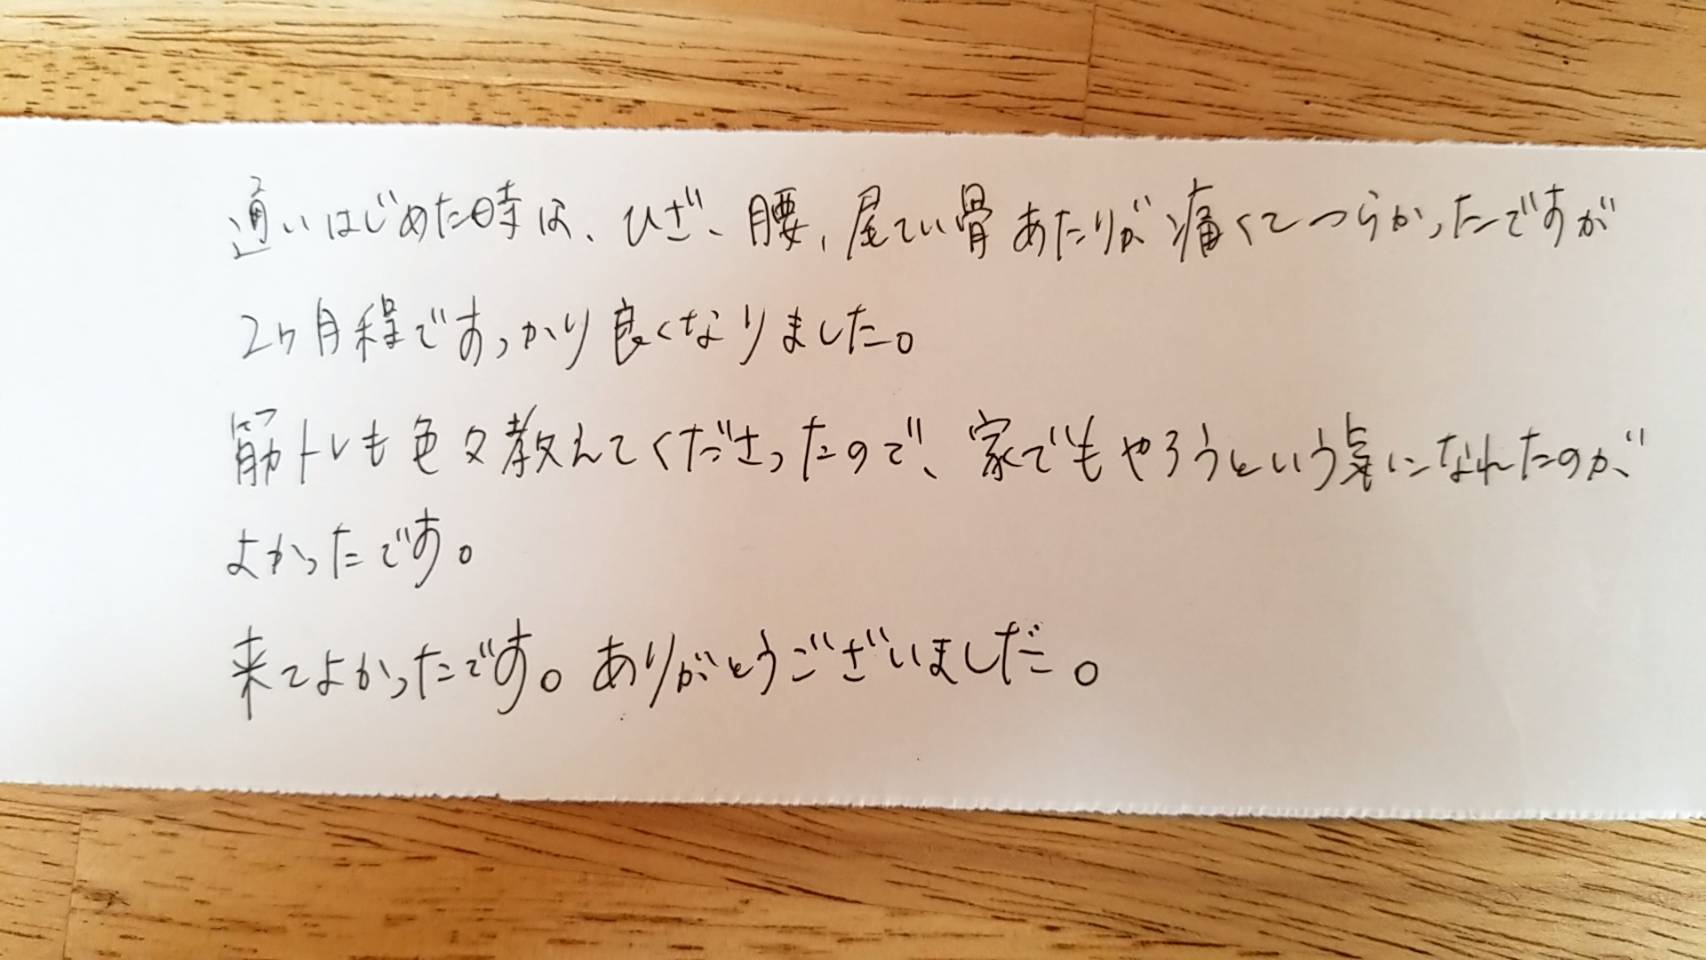 通いはじめた時は、ひざ、腰、尾てい骨あたりが痛くてつらかったですが
2ヶ月程ですっかり良くなりました。
筋トレも色々教えてくださったので、家でもやろうという気になれたのが
よかったです。
来てよかったです。ありがとうございました。